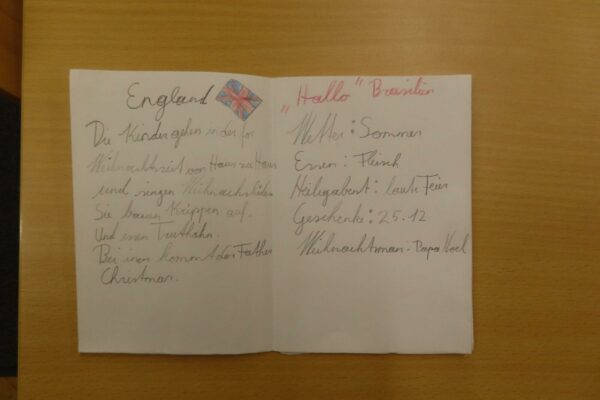 England
Die Kinder gehen in der for
Weihnachtszeit von Haus zu Haus
und singen Weihnachtslieder
Sie bauen Krippen auf.
Und essen Truthahn.
Bei inen kommt der Father
Christmas.
„Hallo" Brasilien
Wetter: Sommer
Essen: Fleisch
Heiligabent: laute Feier
Geschenke: 25.12
Weihnachtsman: Papa Noel